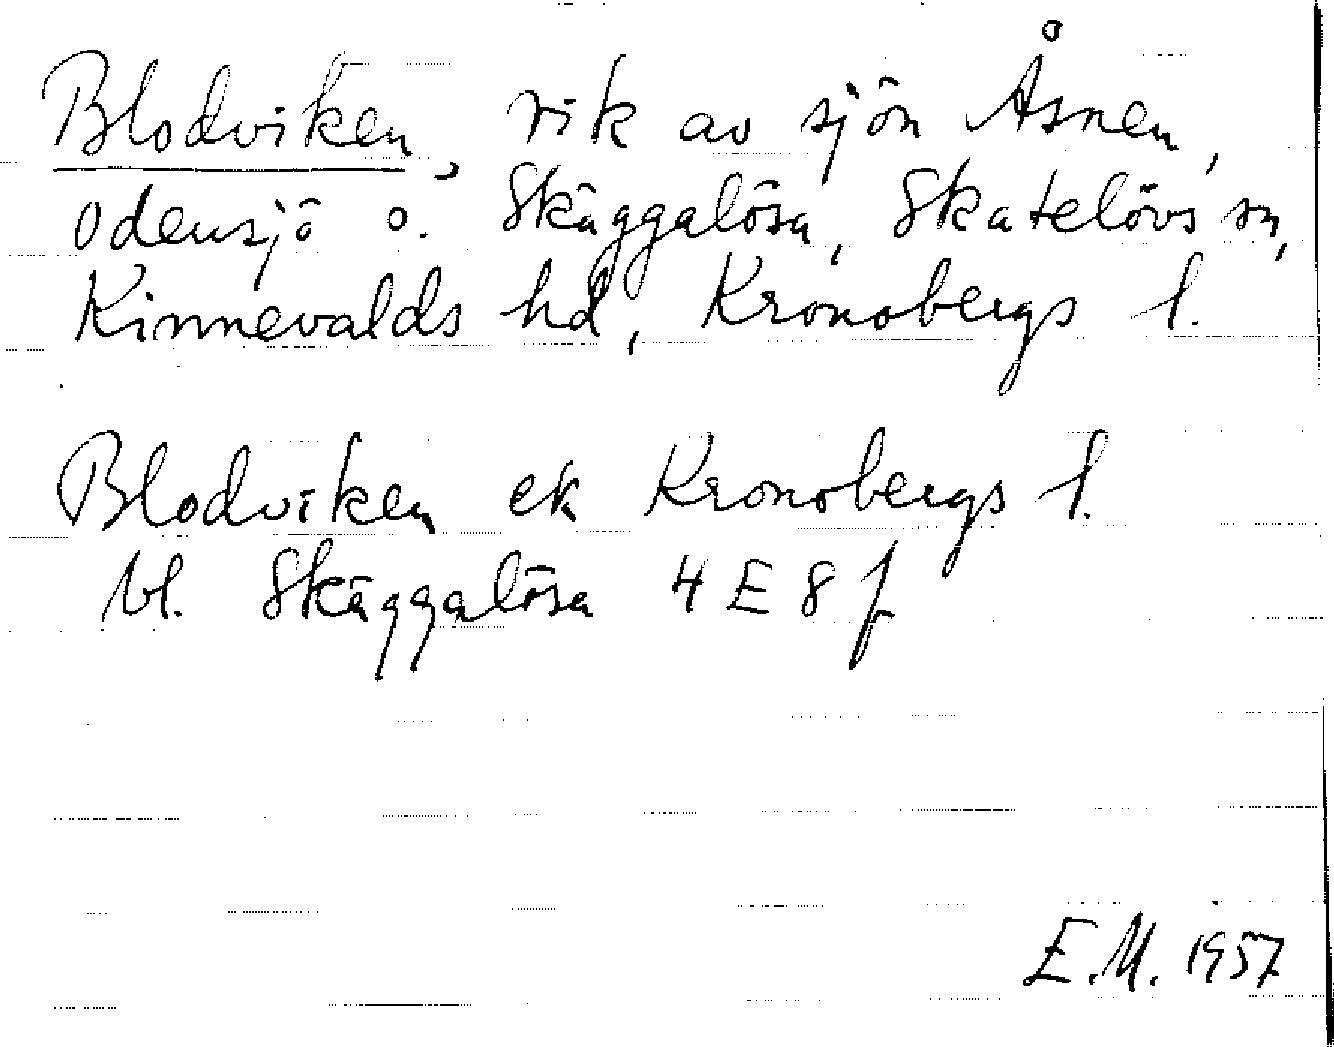 Blodviken, vik av sjön Åsnen,
Odensjö o. Skäggalösa, Skatelövs sn,
Kinnevalds hd, Kronobergs l.
Blodviken ek Kronobergs l.
bl. Skäggalösa 4 E 8 f
E.M. 1957